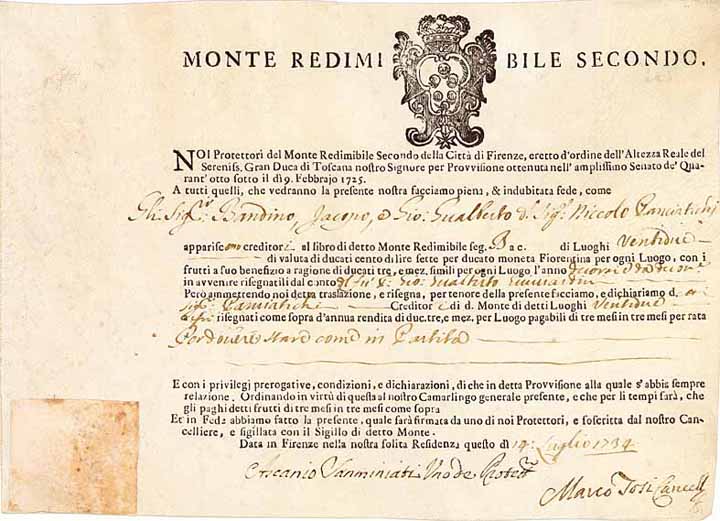 MONTE REDIMIBILE SECONDO.
NOI Protettori del Monte Redimibile Secondo della Città di Firenze, eretto d'ordine dell'Altezza Reale del
Sereniss. Gran Duca di Toscana nostro Signore per Provvisione ottenuta nell'amplissimo Senato de' Qua-
rant'otto sotto il dì 9. Febbrajo 1725.
A tutti quelli, che vedranno la presente nostra facciamo piena, & indubitata fede, come
Bandino, Jacopo, e Gio: Gualberto d. Sig. Niccolo Panciatichj
apparisc ono creditori al libro di detto Monte Redimibile seg. B a c. di Luoghi Ventidue
di valuta di ducati cento di lire sette per ducato moneta Fiorentina per ogni Luogo, con i
frutti a suo benefizio a ragione di ducati tre, e mez. simili per ogni Luogo l'anno
in avvenire risegnatili dal conto Gio: Gualberto
Però ammettendo noi detta traslazione, e risegna, per tenore della presente facciamo, e dichiariamo d.
Panciatichi Creditori e di d. Monte di detti Luoghi Ventidue
risegnati come sopra d'annua rendita di duc. tre, e mez. per Luogo pagabili di tre mesi in tre mesi per rata
stare come in Partita
E con i privilegj prerogative, condizioni, e dichiarazioni, di che in detta Provvisione alla quale s'abbia sempre
relazione. Ordinando in virtù di questa al nostro Camarlingo generale presente, e che per li tempi sarà, che
gli paghi detti frutti di tre mesi in tre mesi come sopra
Et in Fede abbiamo fatto la presente, quale sarà firmata da uno di noi Protettori, e soscritta dal nostro Can-
celliere, e sigillata con il Sigillo di detto Monte.
Data in Firenze nella nostra solita Residenza questo dì 14: Luglio 1734
Ascanio Vno de Protett.ri
Marco Tosi Cancell.